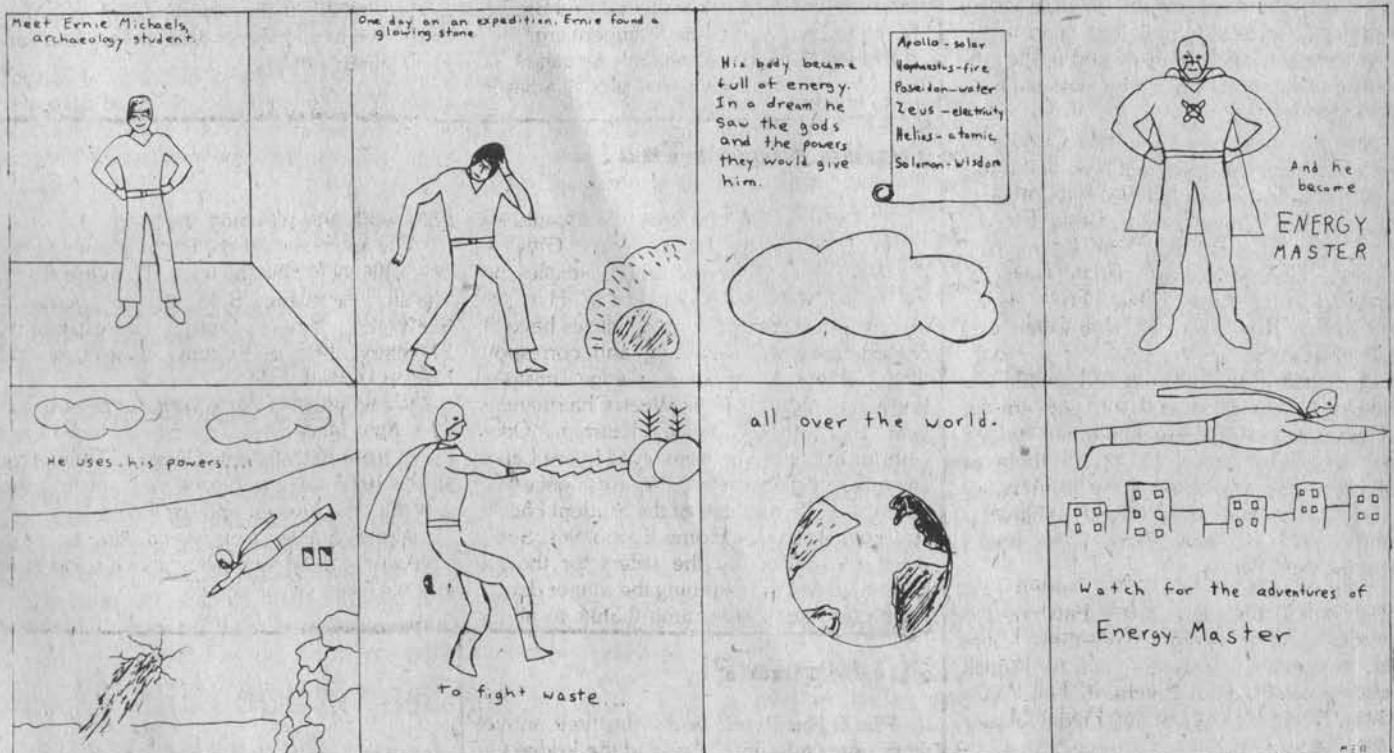 Meet Ernie Michaels,
archaeology student.
One day on an expedition, Ernie found a
glowing stone
His body became
full of energy.
In a dream he
saw the gods
and the powers
they would give
him.
Apollo - solar
Hephaestus - fire
Poseidon - water
Zeus - electricity
Helios - atomic
Solomon - wisdom
And he
became
ENERGY
MASTER
He uses his powers...
to fight waste
all over the world.
Watch for the adventures of
Energy Master